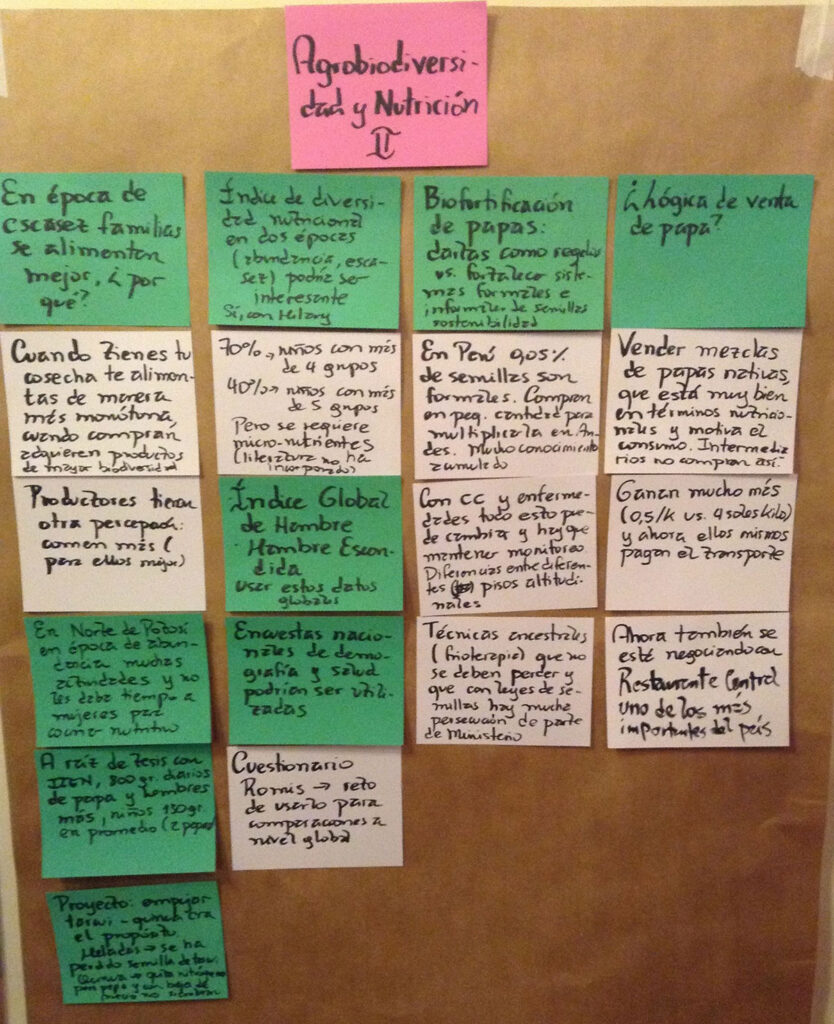 Agrobiodiversi-
dad y Nutrición
II
En época de
escasez familias
se alimentan
mejor, ¿por
qué?
Cuando tienes tu
cosecha te alimen-
tas de manera
más monótona,
cuando compran,
adquieren productos
de mayor biodiversidad
Productores tienen
otra percepción:
comen más (
para ellos mejor)
En Norte de Potosí
en época de abun-
dancia muchas
actividades y no
les daba tiempo a
mujeres para
cocinar nutritivo
A raíz de tesis con
800 gr. diarios
de papa y hombres
más, niños 150 gr.
en promedio (2 papas)
Proyecto: empujar
tarwi - quinua era
el propósito.
Heladas → se ha
perdido semilla de tarwi.
Quinua → quita nitrógeno
para papa y con baja de
precio no siembran
Índice de diversi-
dad nutricional
en dos épocas
(abundancia, esca-
sez) podría ser
interesante
Sí, con Hilary
70% → niños con más
de 4 grupos
40% → niños con más
de 5 grupos
Pero se requiere
micro-nutrientes
(literatura no ha
incorporado)
Índice Global
de Hambre
- Hambre Escon-
dida
usar estos datos
globales
Encuestas nacio-
nales de demo-
grafía y salud
podrían ser utili-
zadas
Cuestionario
Romis → reto
de usarlo para
comparaciones a
nivel global
Biofortificación
de papas:
darlas como regalos
vs. fortalecer siste-
mas formales e
informales de semillas
sostenibilidad
En Perú 0,05%
de semillas son
formales. Compran
en peq. cantidad para
multiplicarla en An-
des. Mucho conocimiento
acumulado
Con CC y enferme-
dades todo esto pue-
de cambiar y hay que
mantener monitoreo.
Diferencias entre diferen-
tes pisos altitudi-
nales
Técnicas ancestrales
(frioterapia) que no
se deben perder y
que con leyes de se-
millas hay mucha
persecución de parte
de Ministerio
¿Lógica de venta
de papa?
Vender mezclas
de papas nativas,
que está muy bien
en términos nutricio-
nales y motiva el
consumo. Intermedia
rios no compran así.
Ganan mucho más
(0,5/k vs. 4 soles kilo)
y ahora ellos mismos
pagan el transporte
Ahora también se
está negociando con
Restaurante Central
uno de los más
importantes del país